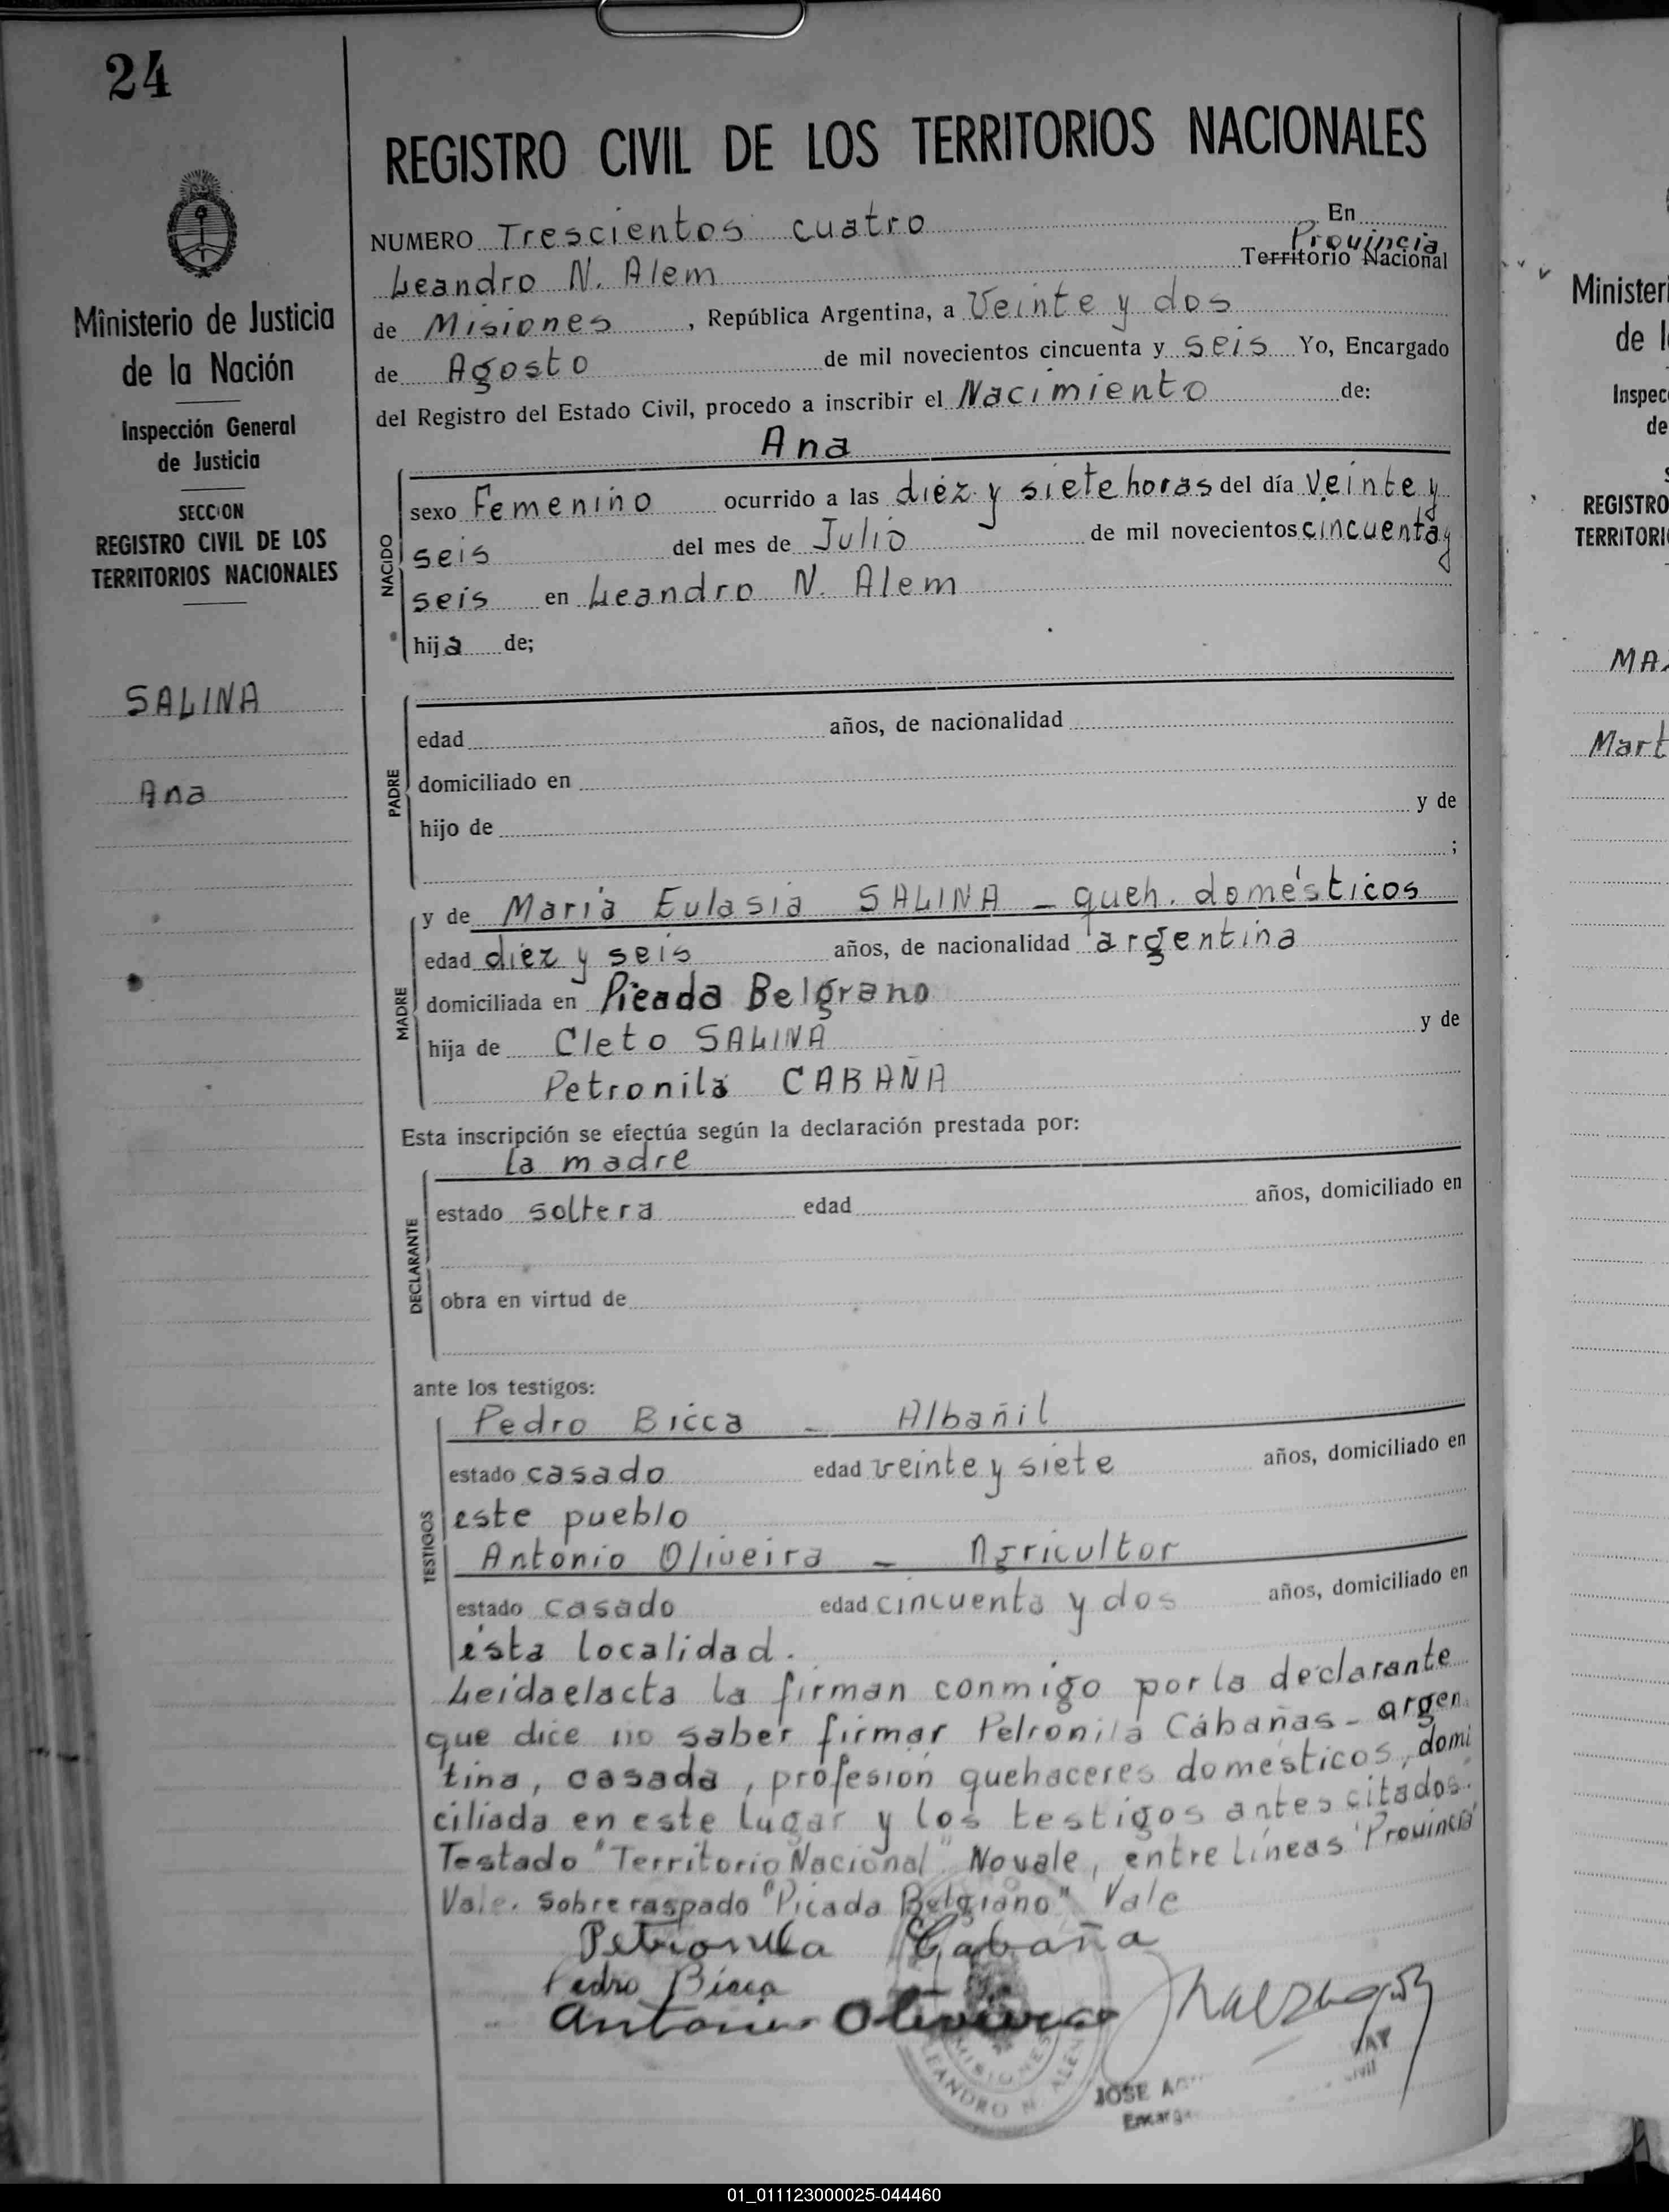 24
REGISTRO CIVIL DE LOS TERRITORIOS NACIONALES
Ministerio de Justicia
de la Nación
Inspección General
de Justicia
SECCION
REGISTRO CIVIL DE LOS
TERRITORIOS NACIONALES
SALINA
Ana
NUMERO Trescientos cuatro En
Provincia
Leandro N. Alem Territorio Nacional
de Misiones, República Argentina, a Veinte y dos
de Agosto de mil novecientos cincuenta y seis Yo, Encargado
del Registro del Estado Civil, procedo a inscribir el Nacimiento de:
Ana
NACIDO
sexo Femenino ocurrido a las diéz y siete horas del día veinte y
seis del mes de Julio de mil novecientos cincuenta y
seis en Leandro N. Alem
hija de;
PADRE
edad años, de nacionalidad
domiciliado en
hijo de y de
;
MADRE
y de Maria Eulasia SALINA - queh. domésticos
edad diéz y seis años, de nacionalidad argentina
domiciliada en Picada Belgrano
hija de Cleto SALINA y de
Petronila CABAÑA
Esta inscripción se efectúa según la declaración prestada por:
La madre
DECLARANTE
estado soltera edad años, domiciliado en
obra en virtud de
ante los testigos:
TESTIGOS
Pedro Bicca - Albañil
estado casado edad veinte y siete años, domiciliado en
este pueblo
Antonio Oliveira - Agricultor
estado casado edad cincuenta y dos años, domiciliado en
ésta localidad.
Leida el acta la firman conmigo por la declarante
que dice no saber firmar Petronila Cabañas - argen
tina, casada, profesión quehaceres domésticos, domi
ciliada en este lugar y los testigos antes citados.
Testado "Territorio Nacional" No vale, entre líneas "Provincia"
Vale. Sobre raspado "Picada Belgrano" Vale
Petronila Cabaña
Pedro Bicca
Antonio Oliveira
MISIONES
LEANDRO N. ALEM
JOSE
Encarg
Minister
de l
Inspec
de
REGISTRO
TERRITORI
MA
Mart
01_011123000025-044460